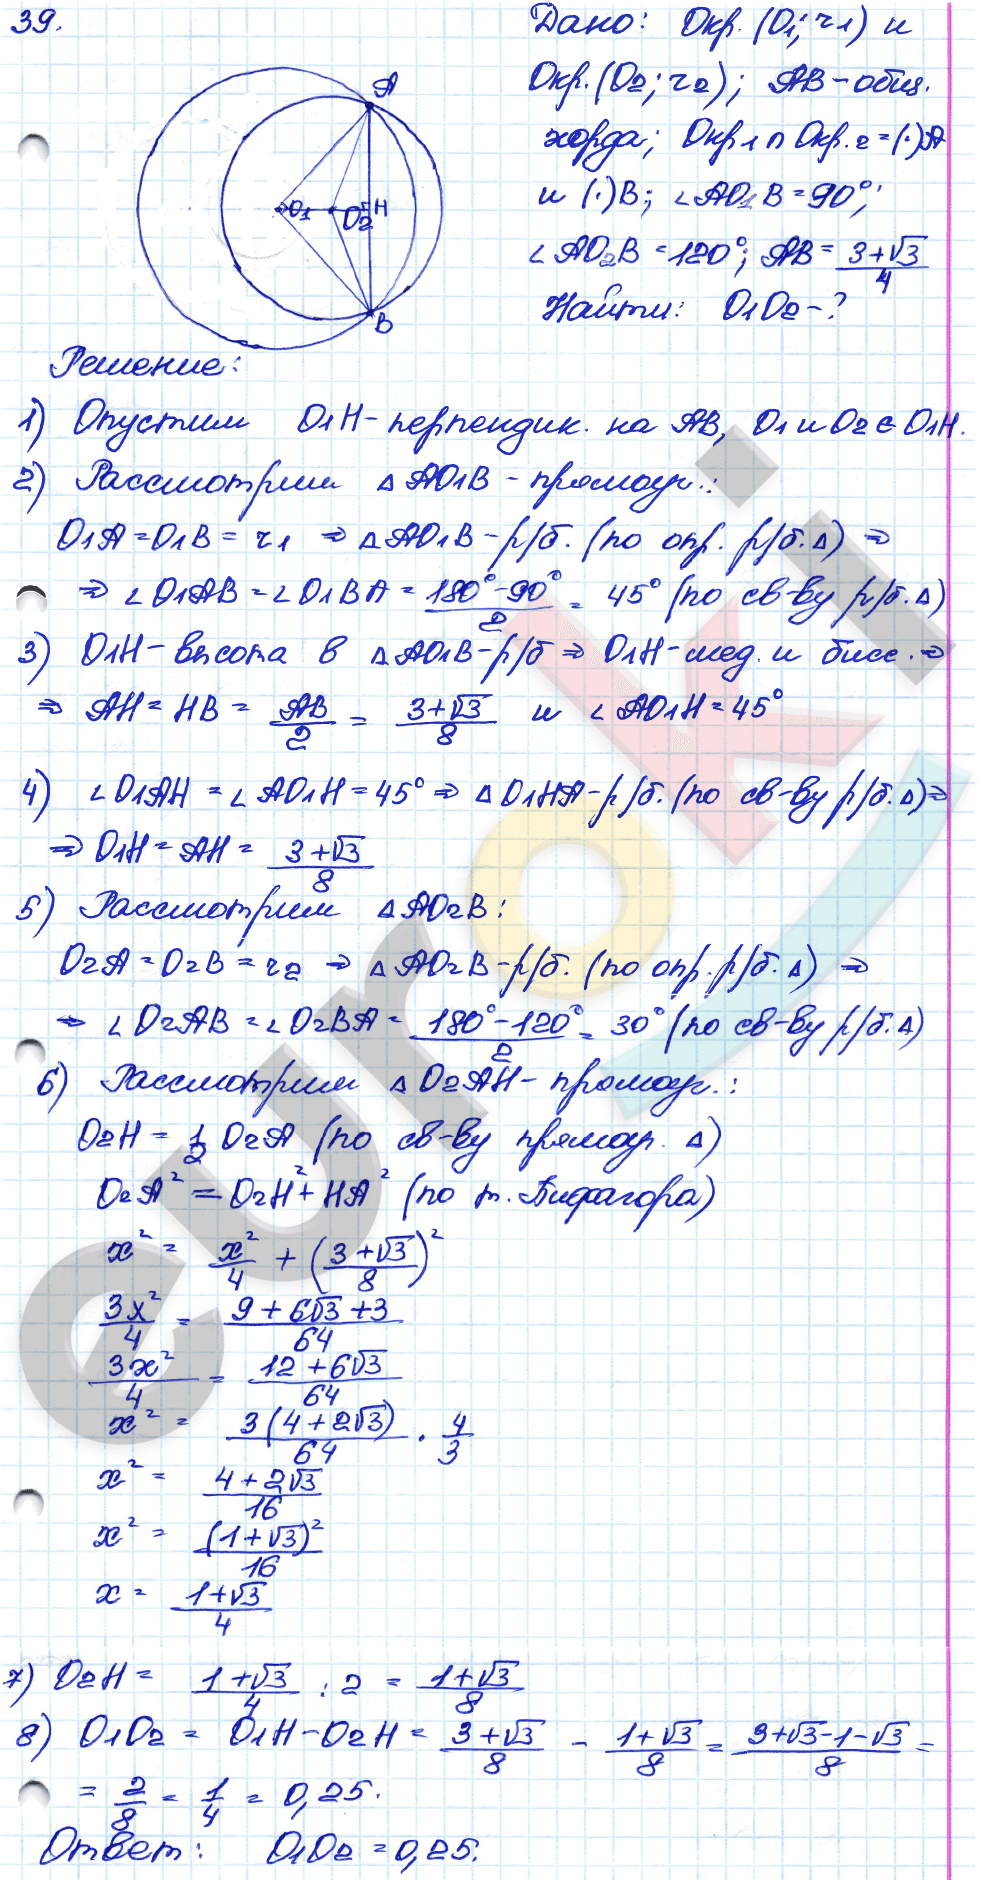 39.
Дано: Окр.(O₁; r₁) и
Окр.(O₂; r₂); AB - общ.
хорда; Окр.₁ ∩ Окр.₂ = (·)A
и (·)B; ∠AO₁B = 90°;
∠AO₂B = 120°; AB = (3+√3)/4
Найти: O₁O₂ - ?
A
O₁ O₂ H
B
Решение:
1) Опустим O₁H - перпендик. на AB, O₁ и O₂ ∈ O₁H.
2) Рассмотрим △AO₁B - прямоуг.:
O₁A = O₁B = r₁ ⇒ △AO₁B - р/б. (по опр. р/б. △) ⇒
⇒ ∠O₁AB = ∠O₁BA = (180° - 90°)/2 = 45° (по св-ву р/б. △)
3) O₁H - высота в △AO₁B - р/б ⇒ O₁H - мед. и бисс. ⇒
⇒ AH = HB = AB/2 = (3+√3)/8 и ∠AO₁H = 45°
4) ∠O₁AH = ∠AO₁H = 45° ⇒ △O₁HA - р/б. (по св-ву р/б. △) ⇒
⇒ O₁H = AH = (3+√3)/8
5) Рассмотрим △AO₂B:
O₂A = O₂B = r₂ ⇒ △AO₂B - р/б. (по опр. р/б. △) ⇒
⇒ ∠O₂AB = ∠O₂BA = (180° - 120°)/2 = 30° (по св-ву р/б. △)
6) Рассмотрим △O₂AH - прямоуг.:
O₂H = 1/2 O₂A (по св-ву прямоуг. △)
O₂A² = O₂H² + HA² (по т. Пифагора)
x² = x²/4 + ((3+√3)/8)²
3x²/4 = (9 + 6√3 + 3)/64
3x²/4 = (12 + 6√3)/64
x² = 3(4 + 2√3)/64 · 4/3
x² = (4 + 2√3)/16
x² = (1+√3)²/16
x = (1+√3)/4
7) O₂H = (1+√3)/4 : 2 = (1+√3)/8
8) O₁O₂ = O₁H - O₂H = (3+√3)/8 - (1+√3)/8 = (3+√3-1-√3)/8 =
= 2/8 = 1/4 = 0,25.
Ответ: O₁O₂ = 0,25.
euroki